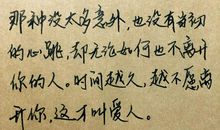 那种没太多意外，也没有当初
的心跳，却无论如何也不离开
你的人。时间越久，越不愿离
开你，这才叫爱人。